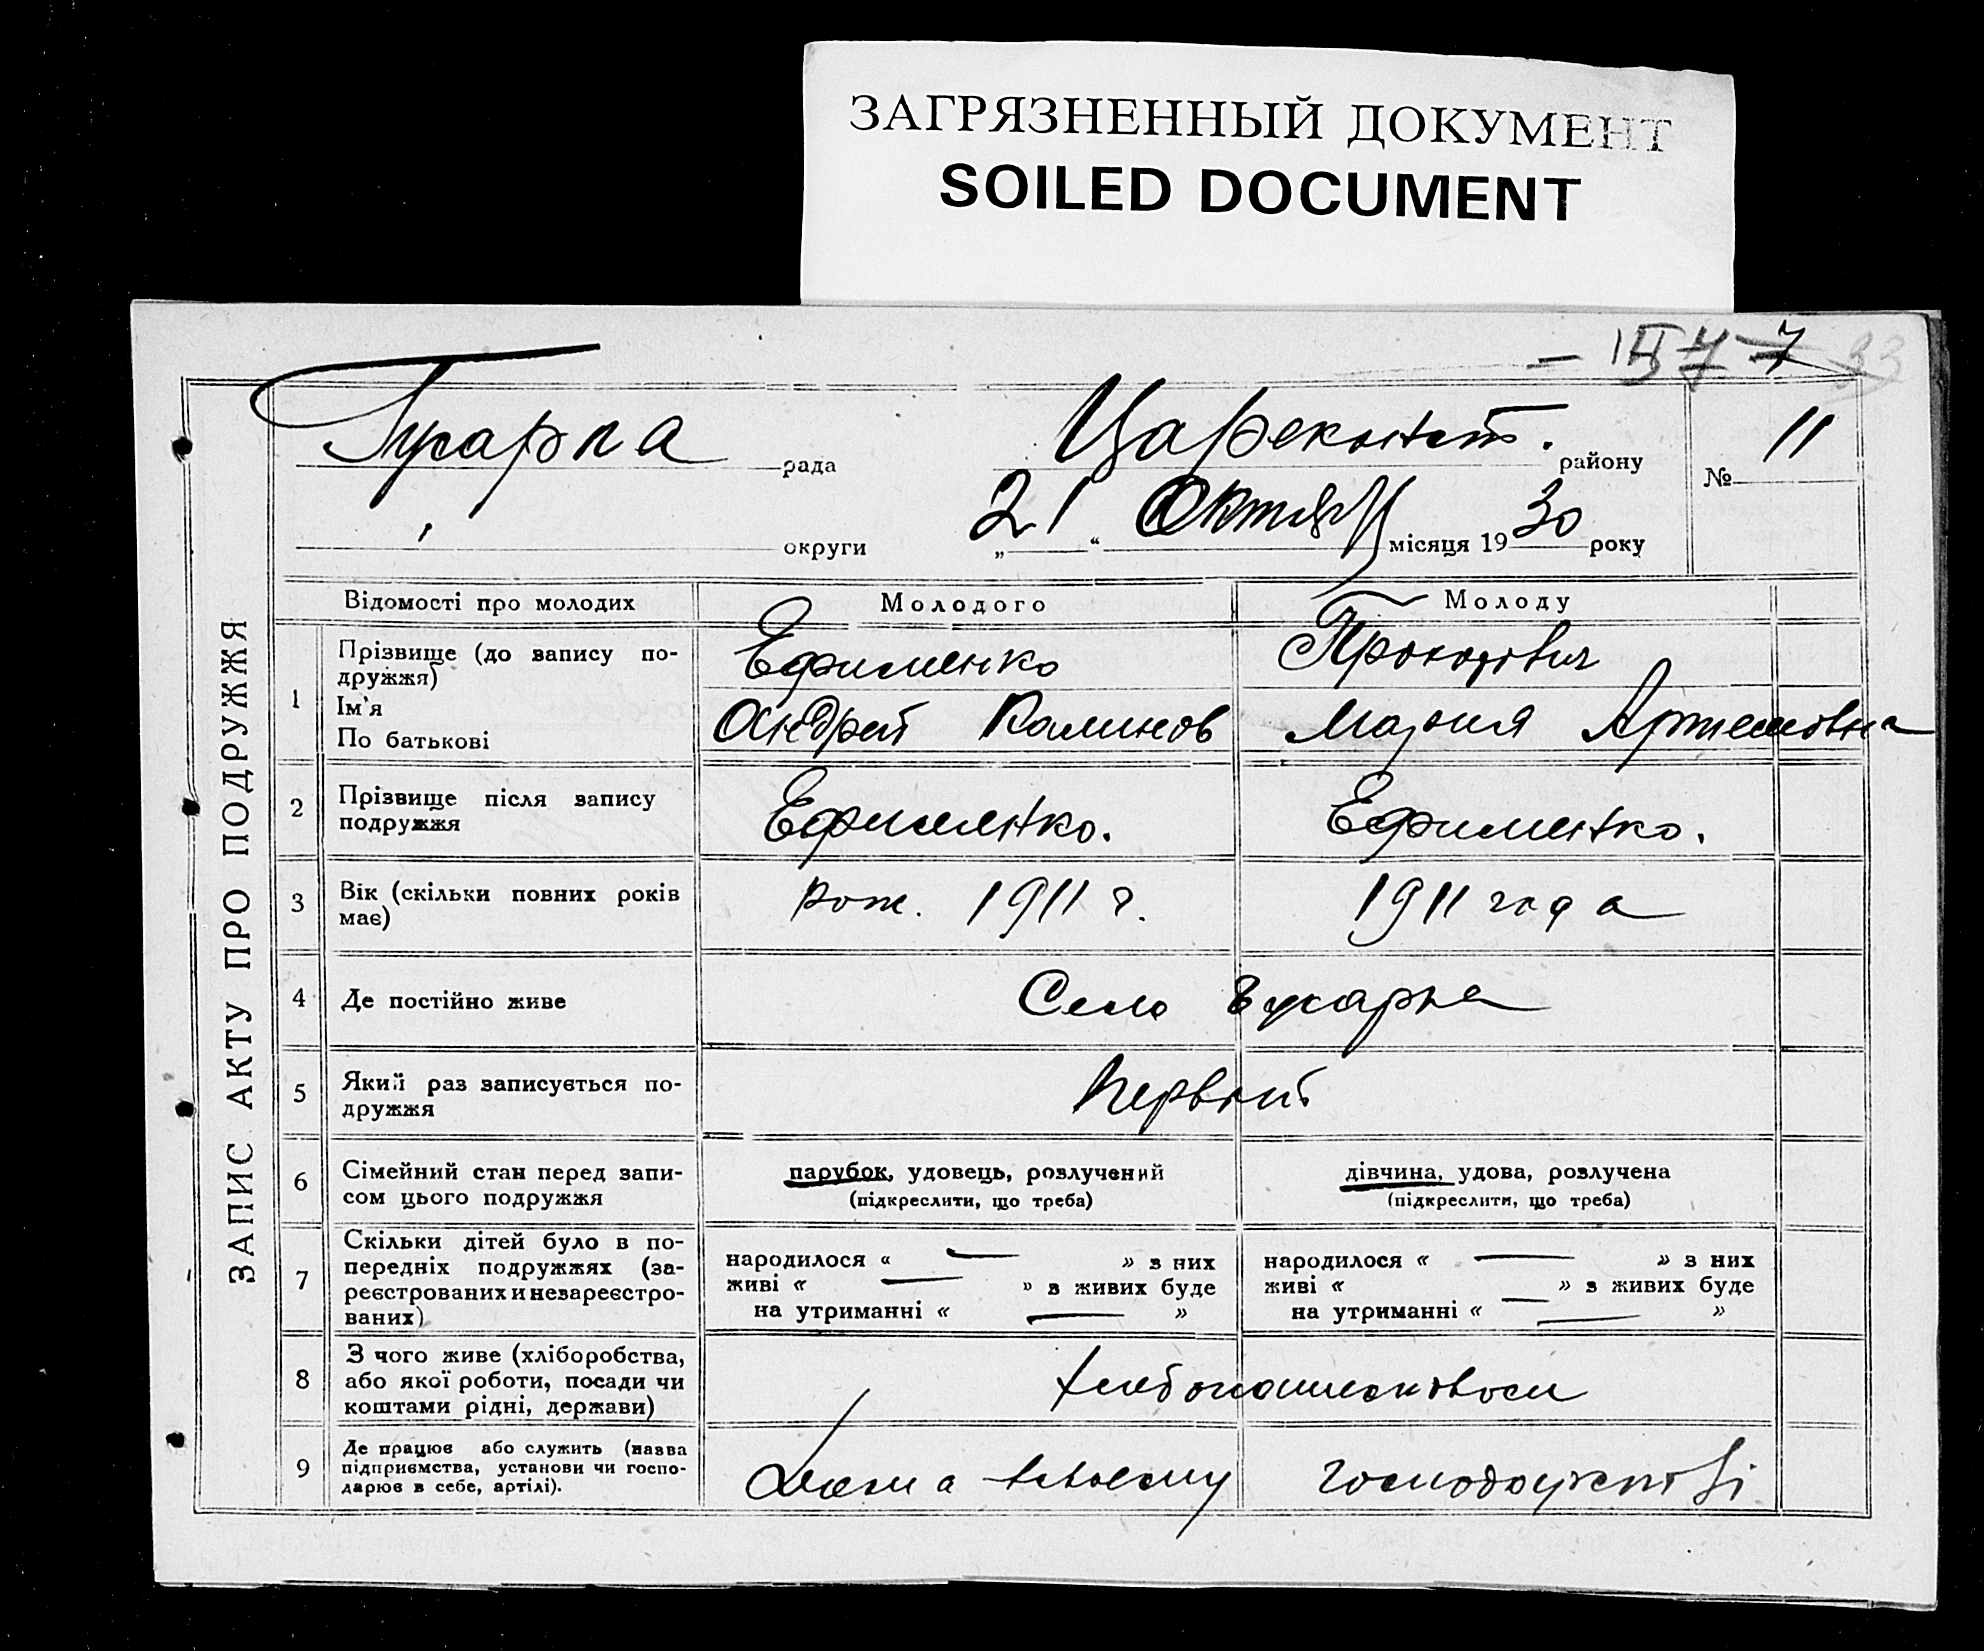 ЗАГРЯЗНЕННЫЙ ДОКУМЕНТ
SOILED DOCUMENT
ЗАПИС АКТУ ПРО ПОДРУЖЖЯ
рада
району
№ 11
округи
„ 21 “ Октяб місяця 19 30 року
Відомості про молодих Молодого Молоду
1 Прізвище (до запису по-
дружжя)
Ефименко
Ім'я
По батькові
Андрей Калинов Мария Артемовна
2 Прізвище після запису
подружжя
Ефименко. Ефименко.
3 Вік (скільки повних років
має)
рож. 1911 г. 1911 года
4 Де постійно живе Село
5 Який раз записується по-
дружжя
Первый
6 Сімейний стан перед запи-
сом цього подружжя
парубок, удовець, розлучений
(підкреслити, що треба)
дівчина, удова, розлучена
(підкреслити, що треба)
7 Скільки дітей було в по-
передніх подружжях (за-
реєстрованих и незареєстро-
ваних)
народилося « — » з них
живі « — » з живих буде
на утриманні « — »
народилося « — » з них
живі « — » з живих буде
на утриманні « — »
8 З чого живе (хліборобства,
або якої роботи, посади чи
коштами рідні, держави)
9 Де працює або служить (назва
підприємства, установи чи госпо-
дарює в себе, артілі).
Дома в своему господарстві